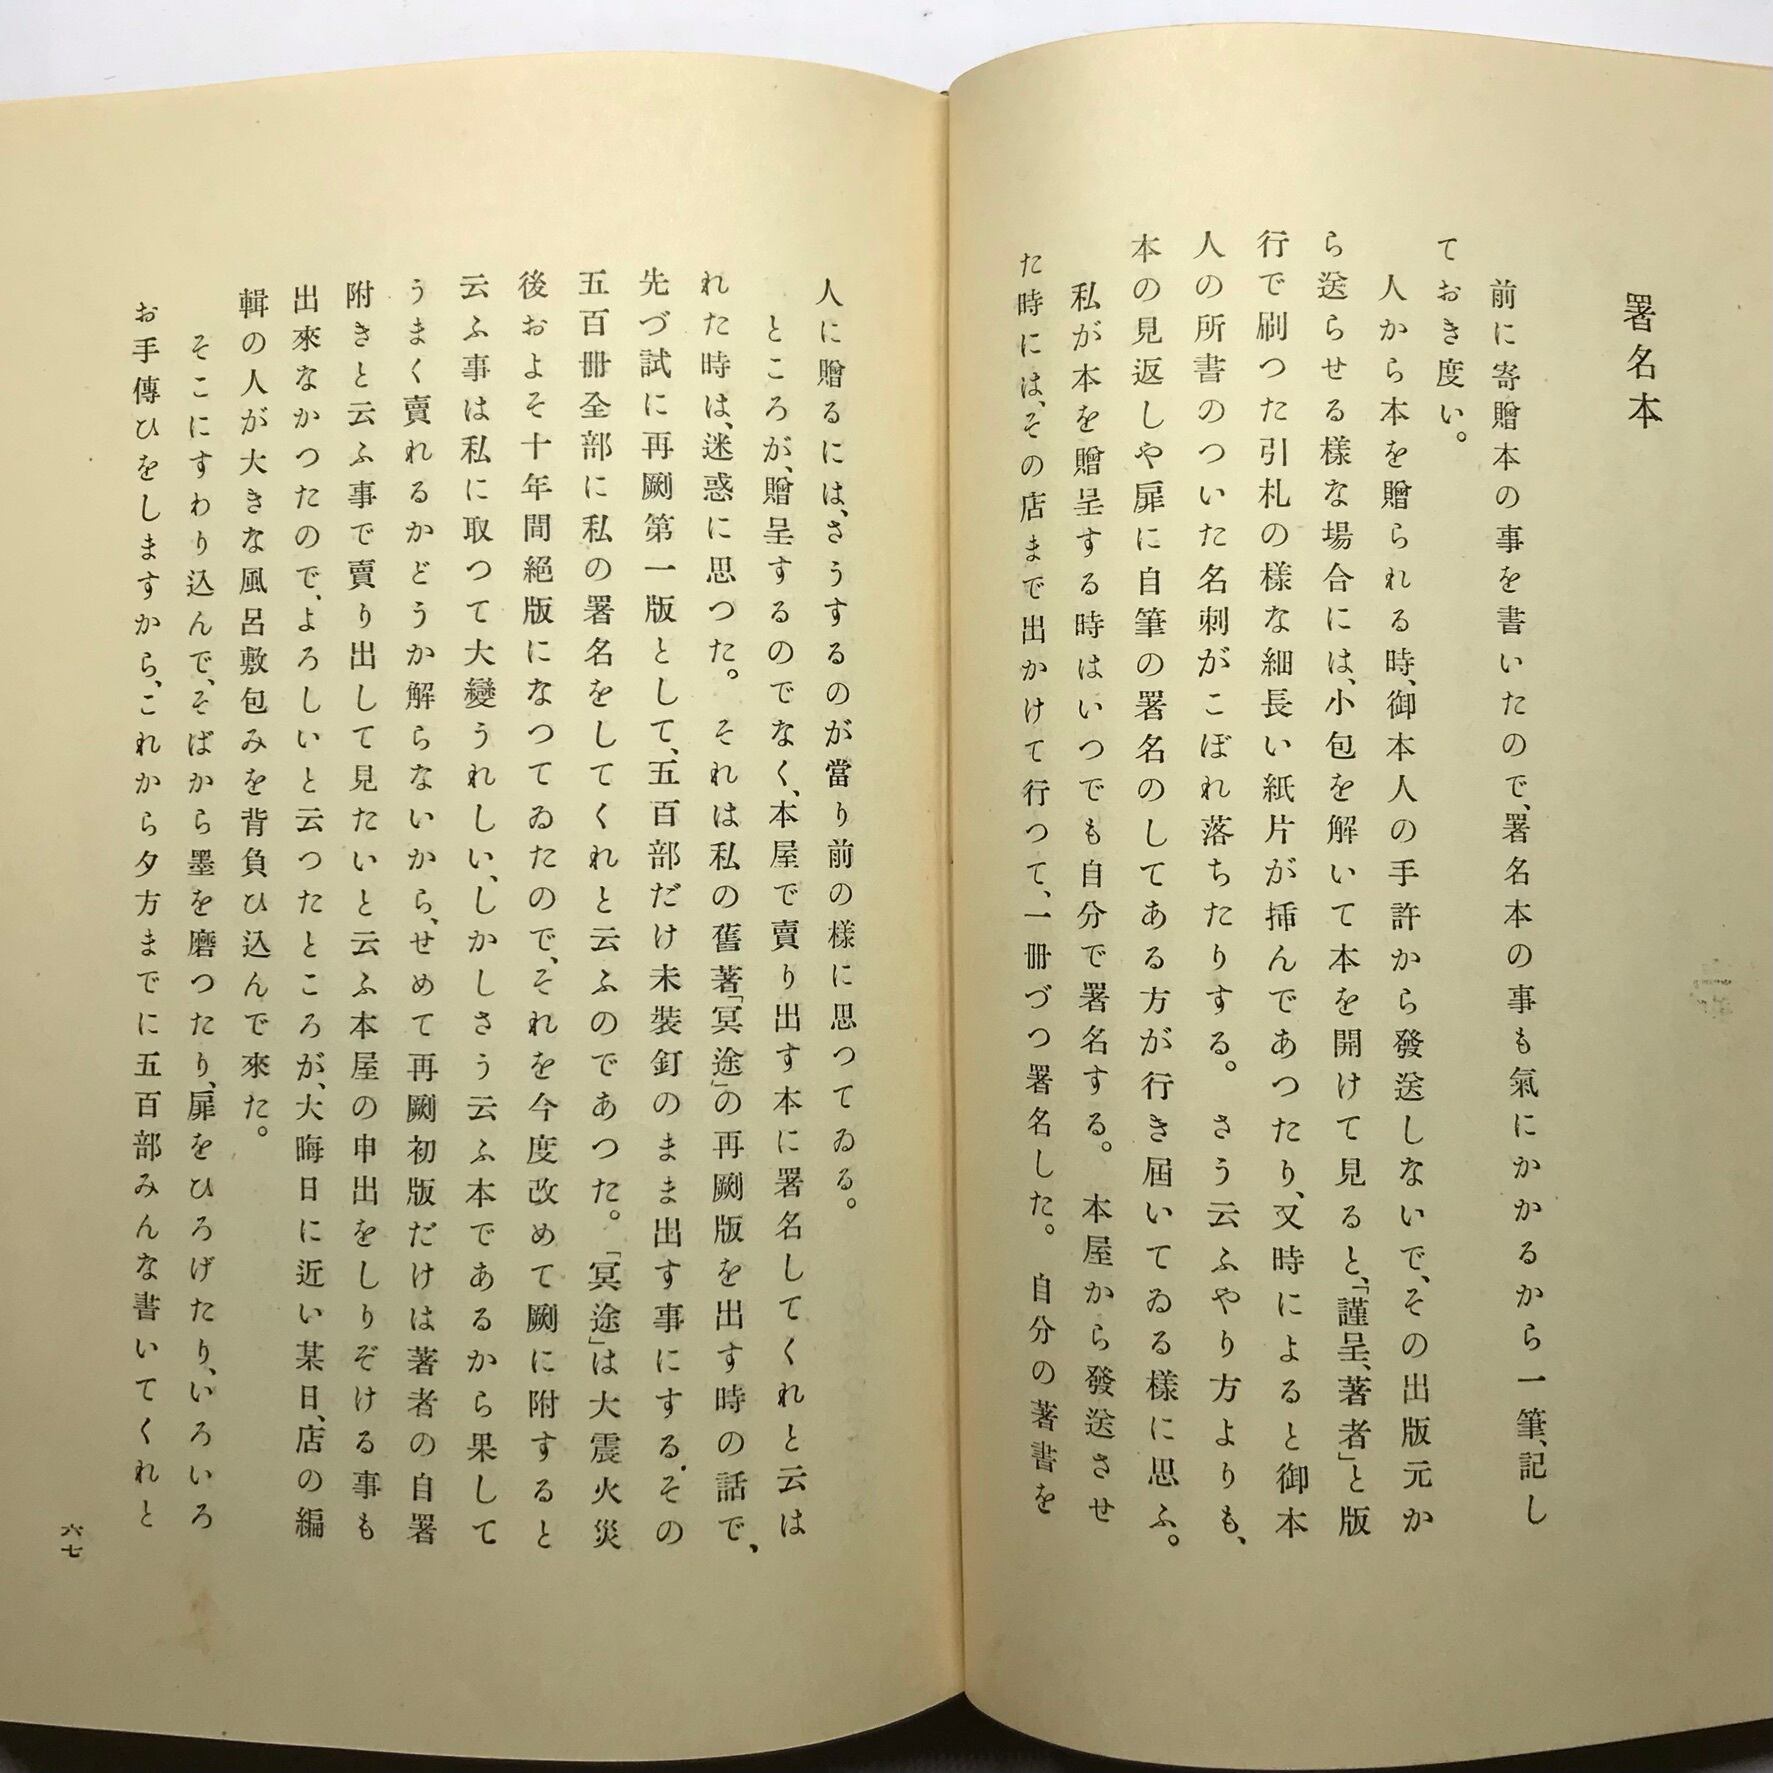 署名本
前に寄贈本の事を書いたので、署名本の事も氣にかかるから一筆、記し
ておき度い。
人から本を贈られる時、御本人の手許から發送しないで、その出版元か
ら送らせる樣な場合には、小包を解いて本を開けて見ると、「謹呈、著者」と版
行で刷つた引札の樣な細長い紙片が挿んであつたり、又時によると御本
人の所書のついた名刺がこぼれ落ちたりする。さう云ふやり方よりも、
本の見返しや扉に自筆の署名のしてある方が行き屆いてゐる樣に思ふ。
私が本を贈呈する時はいつでも自分で署名する。本屋から發送させ
た時には、その店まで出かけて行つて、一冊づつ署名した。自分の著書を
人に贈るには、さうするのが當り前の樣に思つてゐる。
ところが、贈呈するのでなく、本屋で賣り出す本に署名してくれと云は
れた時は、迷惑に思つた。それは私の舊著「冥途」の再劂版を出す時の話で、
先づ試に再劂第一版として、五百部だけ未裝釘のまま出す事にする。その
五百冊全部に私の署名をしてくれと云ふのであつた。「冥途」は大震火災
後およそ十年間絕版になつてゐたので、それを今度改めて劂に附すると
云ふ事は私に取つて大變うれしい、しかしさう云ふ本であるから果して
うまく賣れるかどうか解らないから、せめて再劂初版だけは著者の自署
附きと云ふ事で賣り出して見たいと云ふ本屋の申出をしりぞける事も
出來なかつたので、よろしいと云つたところが、大晦日に近い某日、店の編
輯の人が大きな風呂敷包みを背負ひ込んで來た。
そこにすわり込んで、そばから墨を磨つたり、扉をひろげたり、いろいろ
お手傳ひをしますから、これから夕方までに五百部みんな書いてくれと
六七